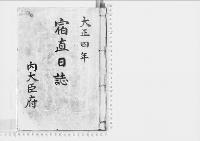 大正四年
宿直日誌
内大臣府